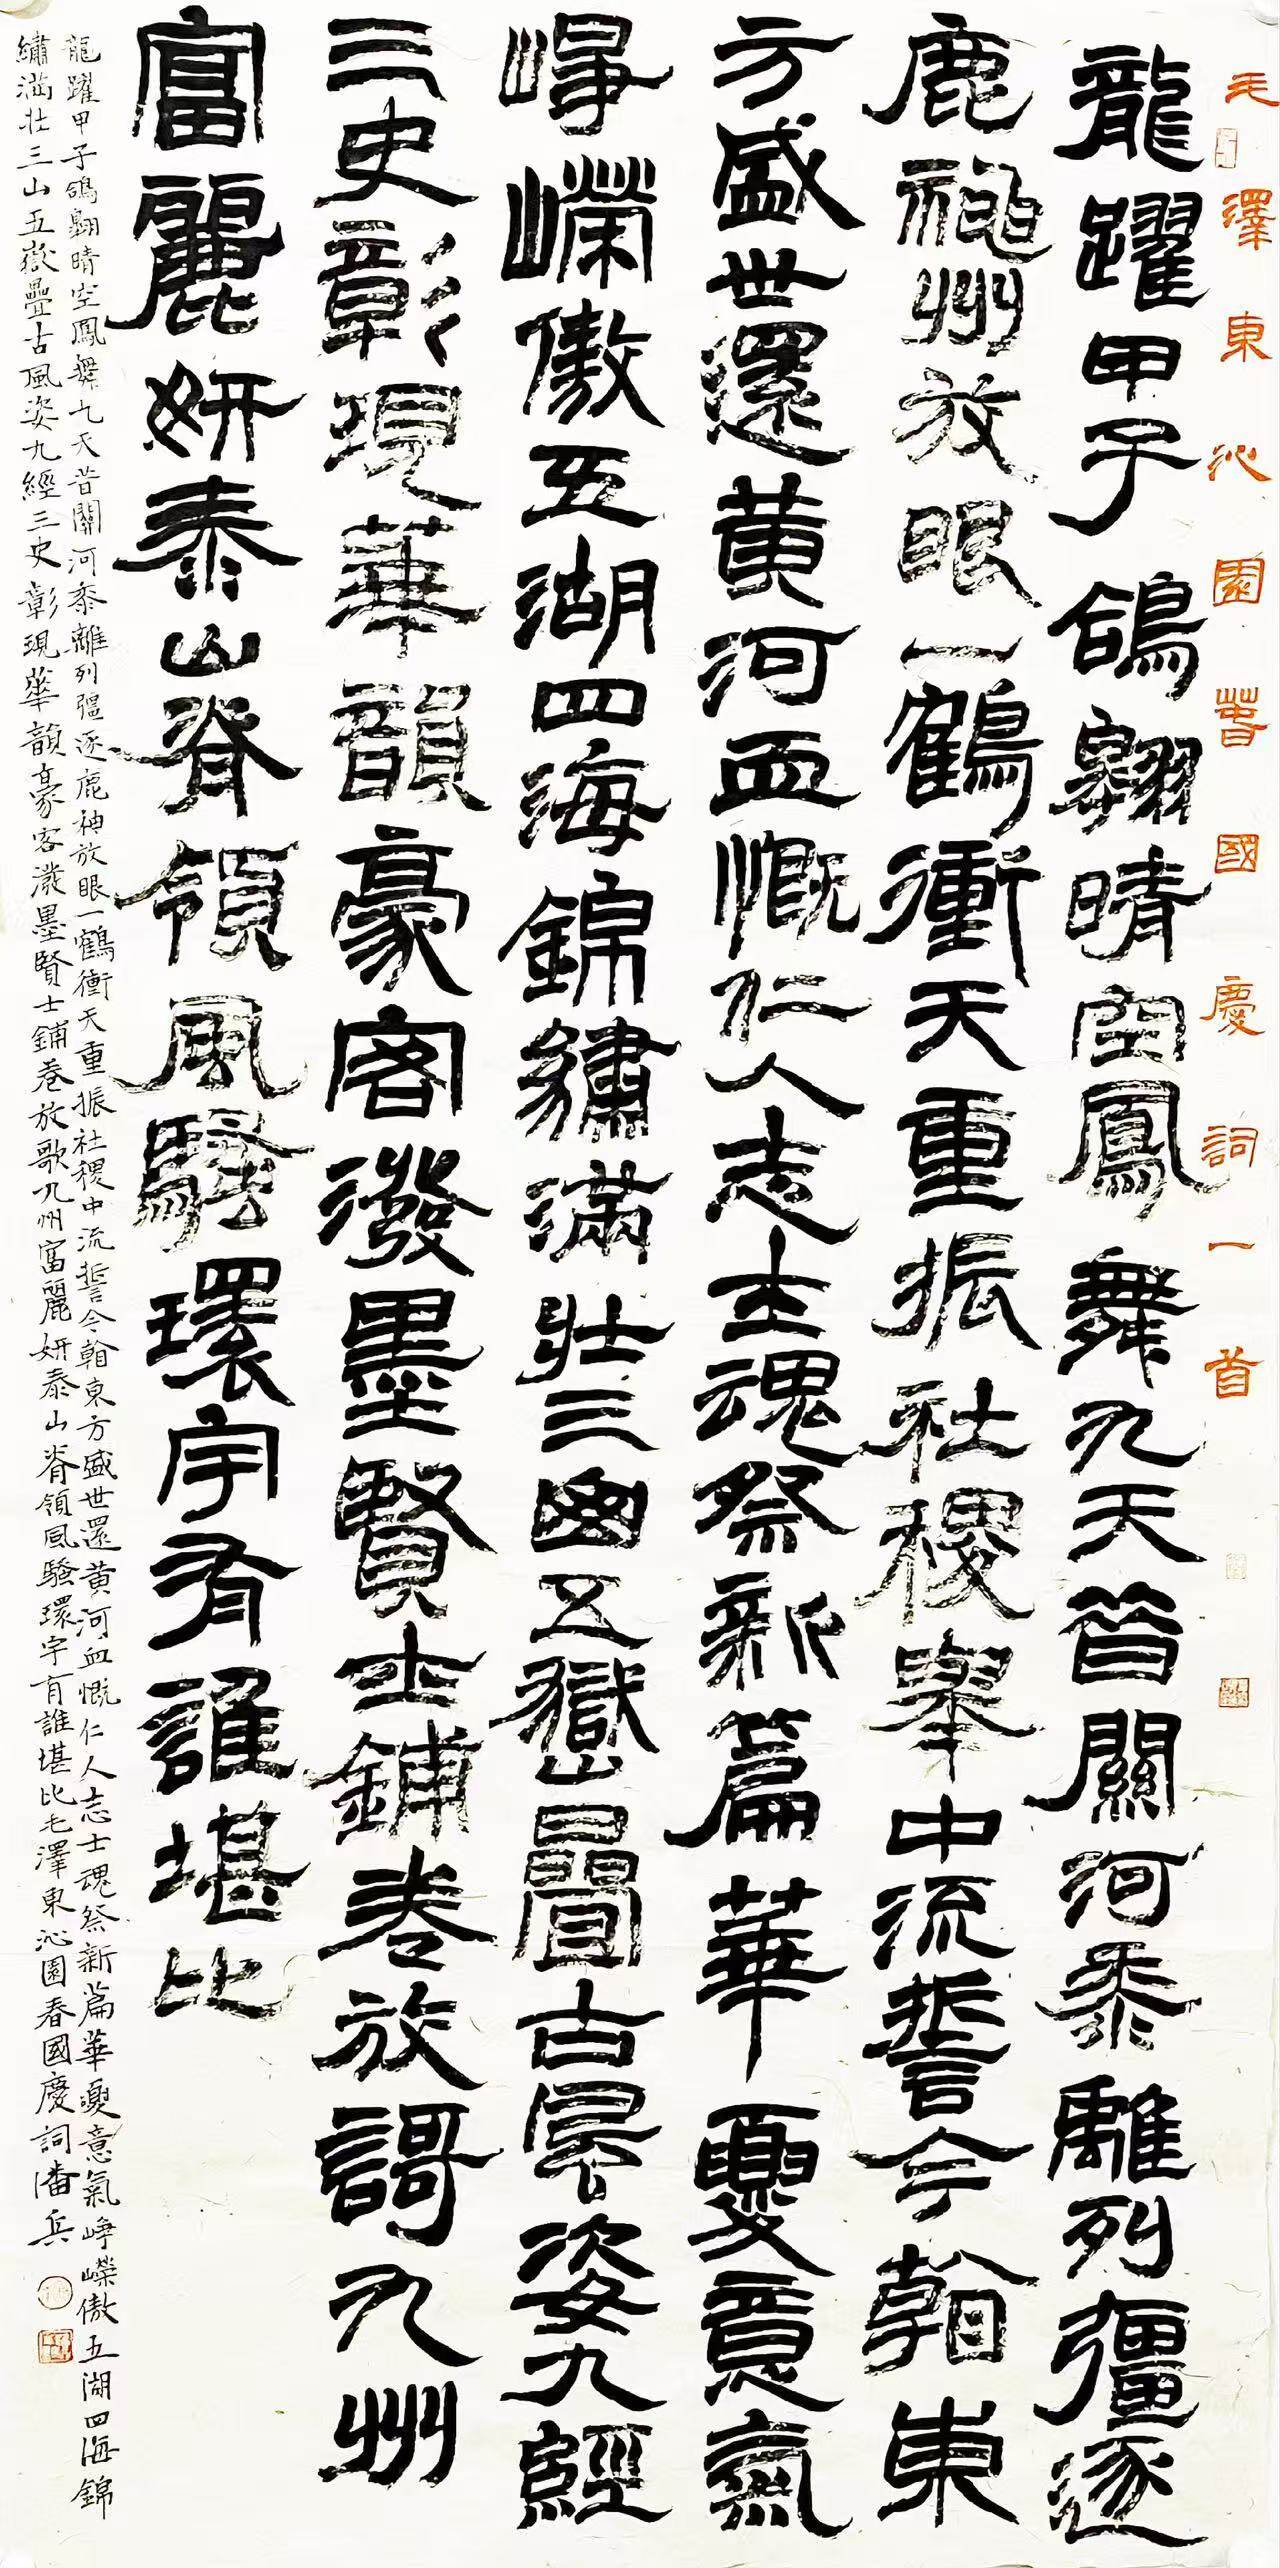 毛澤東沁園春國慶詞一首
龍躍甲子鴿翱晴空鳳舞九天昔關河黍離列彊逐
鹿神州放眼一鶴衝天重振社稷舉中流誓今翰東
方盛世還黄河血慨仁人志士魂祭新篇華夏意氣
崢嶸傲五湖四海錦繡滿壯三山五嶽疊古風姿九經
三史彰現華韻豪客潑墨賢士鋪卷放歌九州
富麗妍泰山脊領風騷環宇有誰堪比
龍躍甲子鴿翱晴空鳳舞九天昔關河黍離列彊逐鹿神放眼一鶴衝天重振社稷中流誓今翰東方盛世還黄河血慨仁人志士魂祭新篇華夏意氣崢嶸傲五湖四海錦
繡滿壯三山五嶽疊古風姿九經三史彰現華韻豪客潑墨賢士鋪卷放歌九州富麗妍泰山脊領風騷環宇有誰堪比毛澤東沁園春國慶詞潘兵